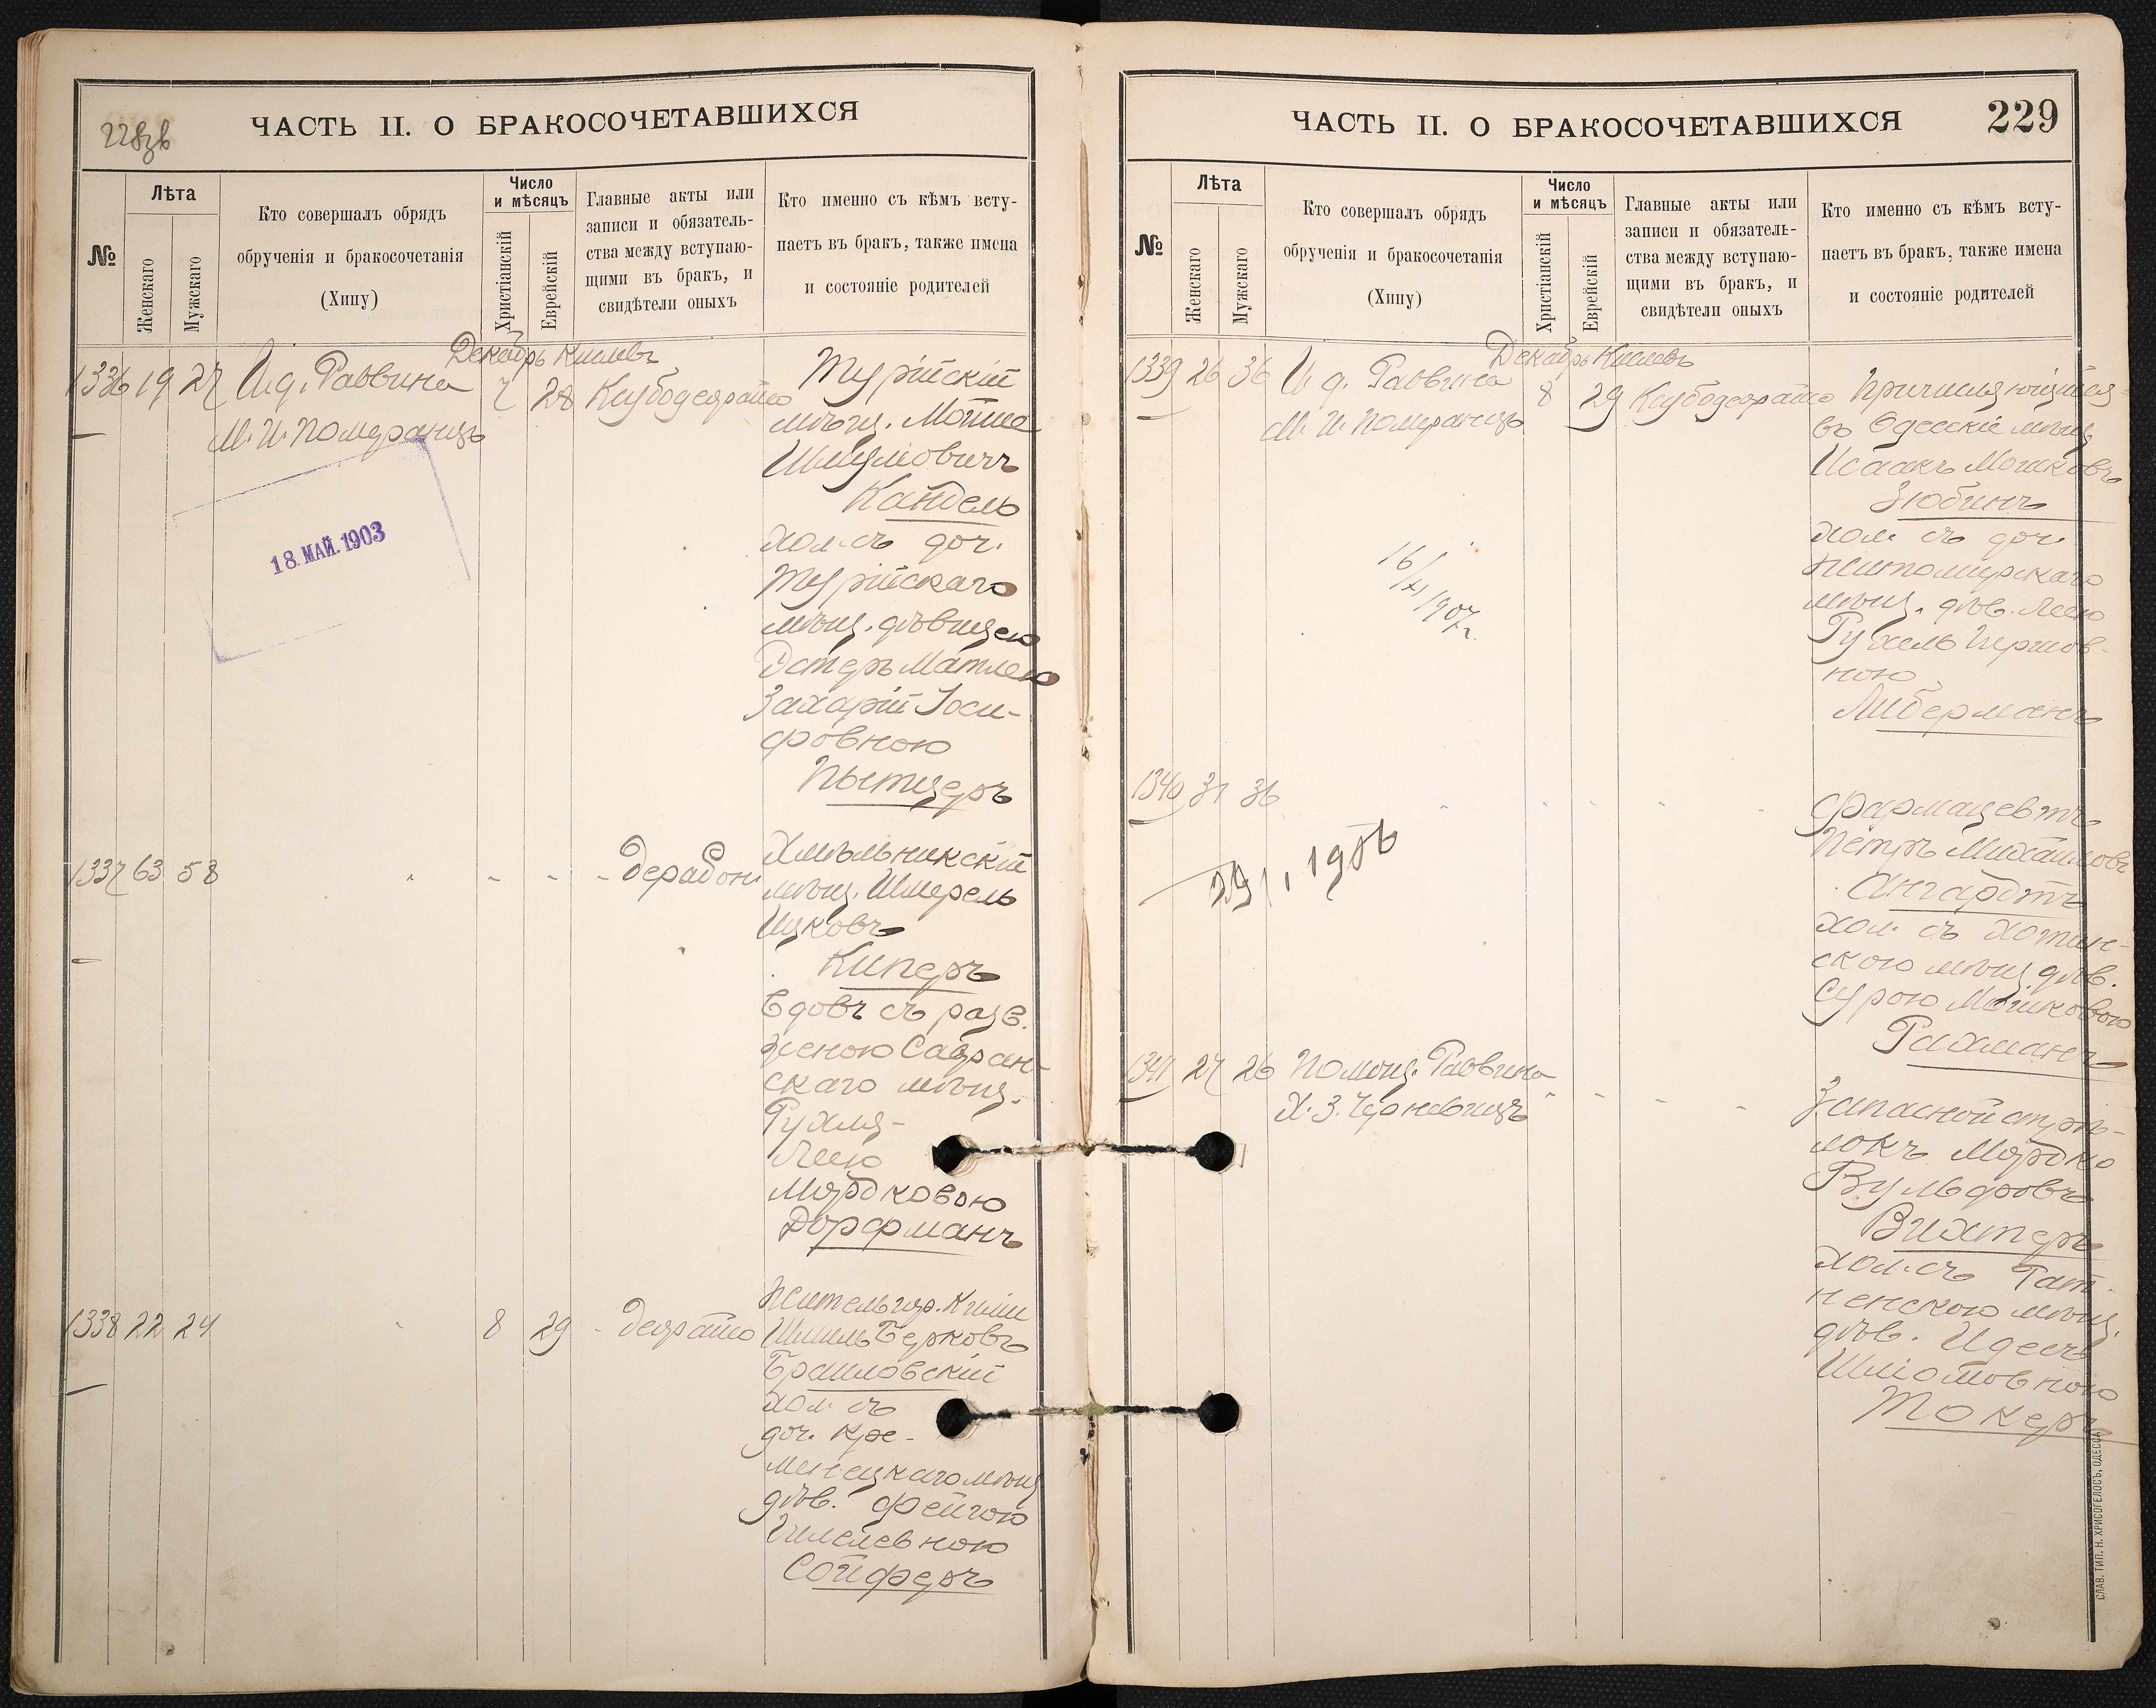 228зв
ЧАСТЬ II. О БРАКОСОЧЕТАВШИХСЯ
№
Лѣта
Женскаго
Мужскаго
Кто совершалъ обрядъ
обрученія и бракосочетанія
(Хипу)
Число
и мѣсяцъ
Христіанскій
Еврейскій
Главные акты или
записи и обязатель-
ства между вступаю-
щими въ бракъ, и
свидѣтели оныхъ
Кто именно съ кѣмъ всту-
паетъ въ бракъ, также имена
и состояніе родителей
Декабрь Кислевъ
1336 19 27 И.д. Раввина 7 28 Ксубодеорайсо
М. И. Померанцъ
18. МАЙ. 1903
Турійскій
мѣщ. Мойше
Шмулювичъ
Кандель
хол. съ доч.
Турійскаго
мѣщ. дѣвицею
Эстеръ Матлею
Захарій Іоси-
фовною
Пытцеръ
1337 63 58 " - - - дерабон
Хмѣльникскій
мѣщ. Шмерель
Ицковъ
Киперъ
вдовъ съ разв.
женою Савран-
скаго мѣщ.
Рухля-
Леею
Мордковою
Дорфманъ
1338 22 24 " 8 29 - деорайсо
Житель гор. Киліи
Шмиль Берковъ
Браиловскій
хол. съ
доч. Кре-
менецкаго мѣщ
дѣв. Фейгою
Сойферъ
ЧАСТЬ II. О БРАКОСОЧЕТАВШИХСЯ
229
№
Лѣта
Женскаго
Мужскаго
Кто совершалъ обрядъ
обрученія и бракосочетанія
(Хипу)
Число
и мѣсяцъ
Христіанскій
Еврейскій
Главные акты или
записи и обязатель-
ства между вступаю-
щими въ бракъ, и
свидѣтели оныхъ
Кто именно съ кѣмъ всту-
паетъ въ бракъ, также имена
и состояніе родителей
Декабрь Кислевъ
1339 26 36 И. д. Раввина 8 29 Ксубодеорайсо
М. И. Померанцъ
16/XI 1907 г.
Причисляющійся
въ Одесскіе мѣщ
Исаакъ Мошковъ
Зюбинъ
хол. съ доч.
Житомирскаго
мѣщ. дѣв. Леею
Рухель Гершов-
ною
Либерманъ
1340 31 36 " " " " "
29/I 1906
Фармацевтъ
Петръ Михайловъ
Ангардтъ
хол. съ Хотин-
скою мѣщ. дѣв.
Сурою Мошковою
Рахманъ
1341 27 26 Помощ. Раввина " - - -
Х. З. Черковицъ
Запасной стрѣ-
локъ Мордко
Вульфовъ
Вихтеръ
хол. съ Гат-
ненскою мѣщ.
дѣв. Идесъ
Шліомовною
Токеръ
СЛАВ. ТИП. Н. ХРИСОГЕЛОСЪ, ОДЕССА